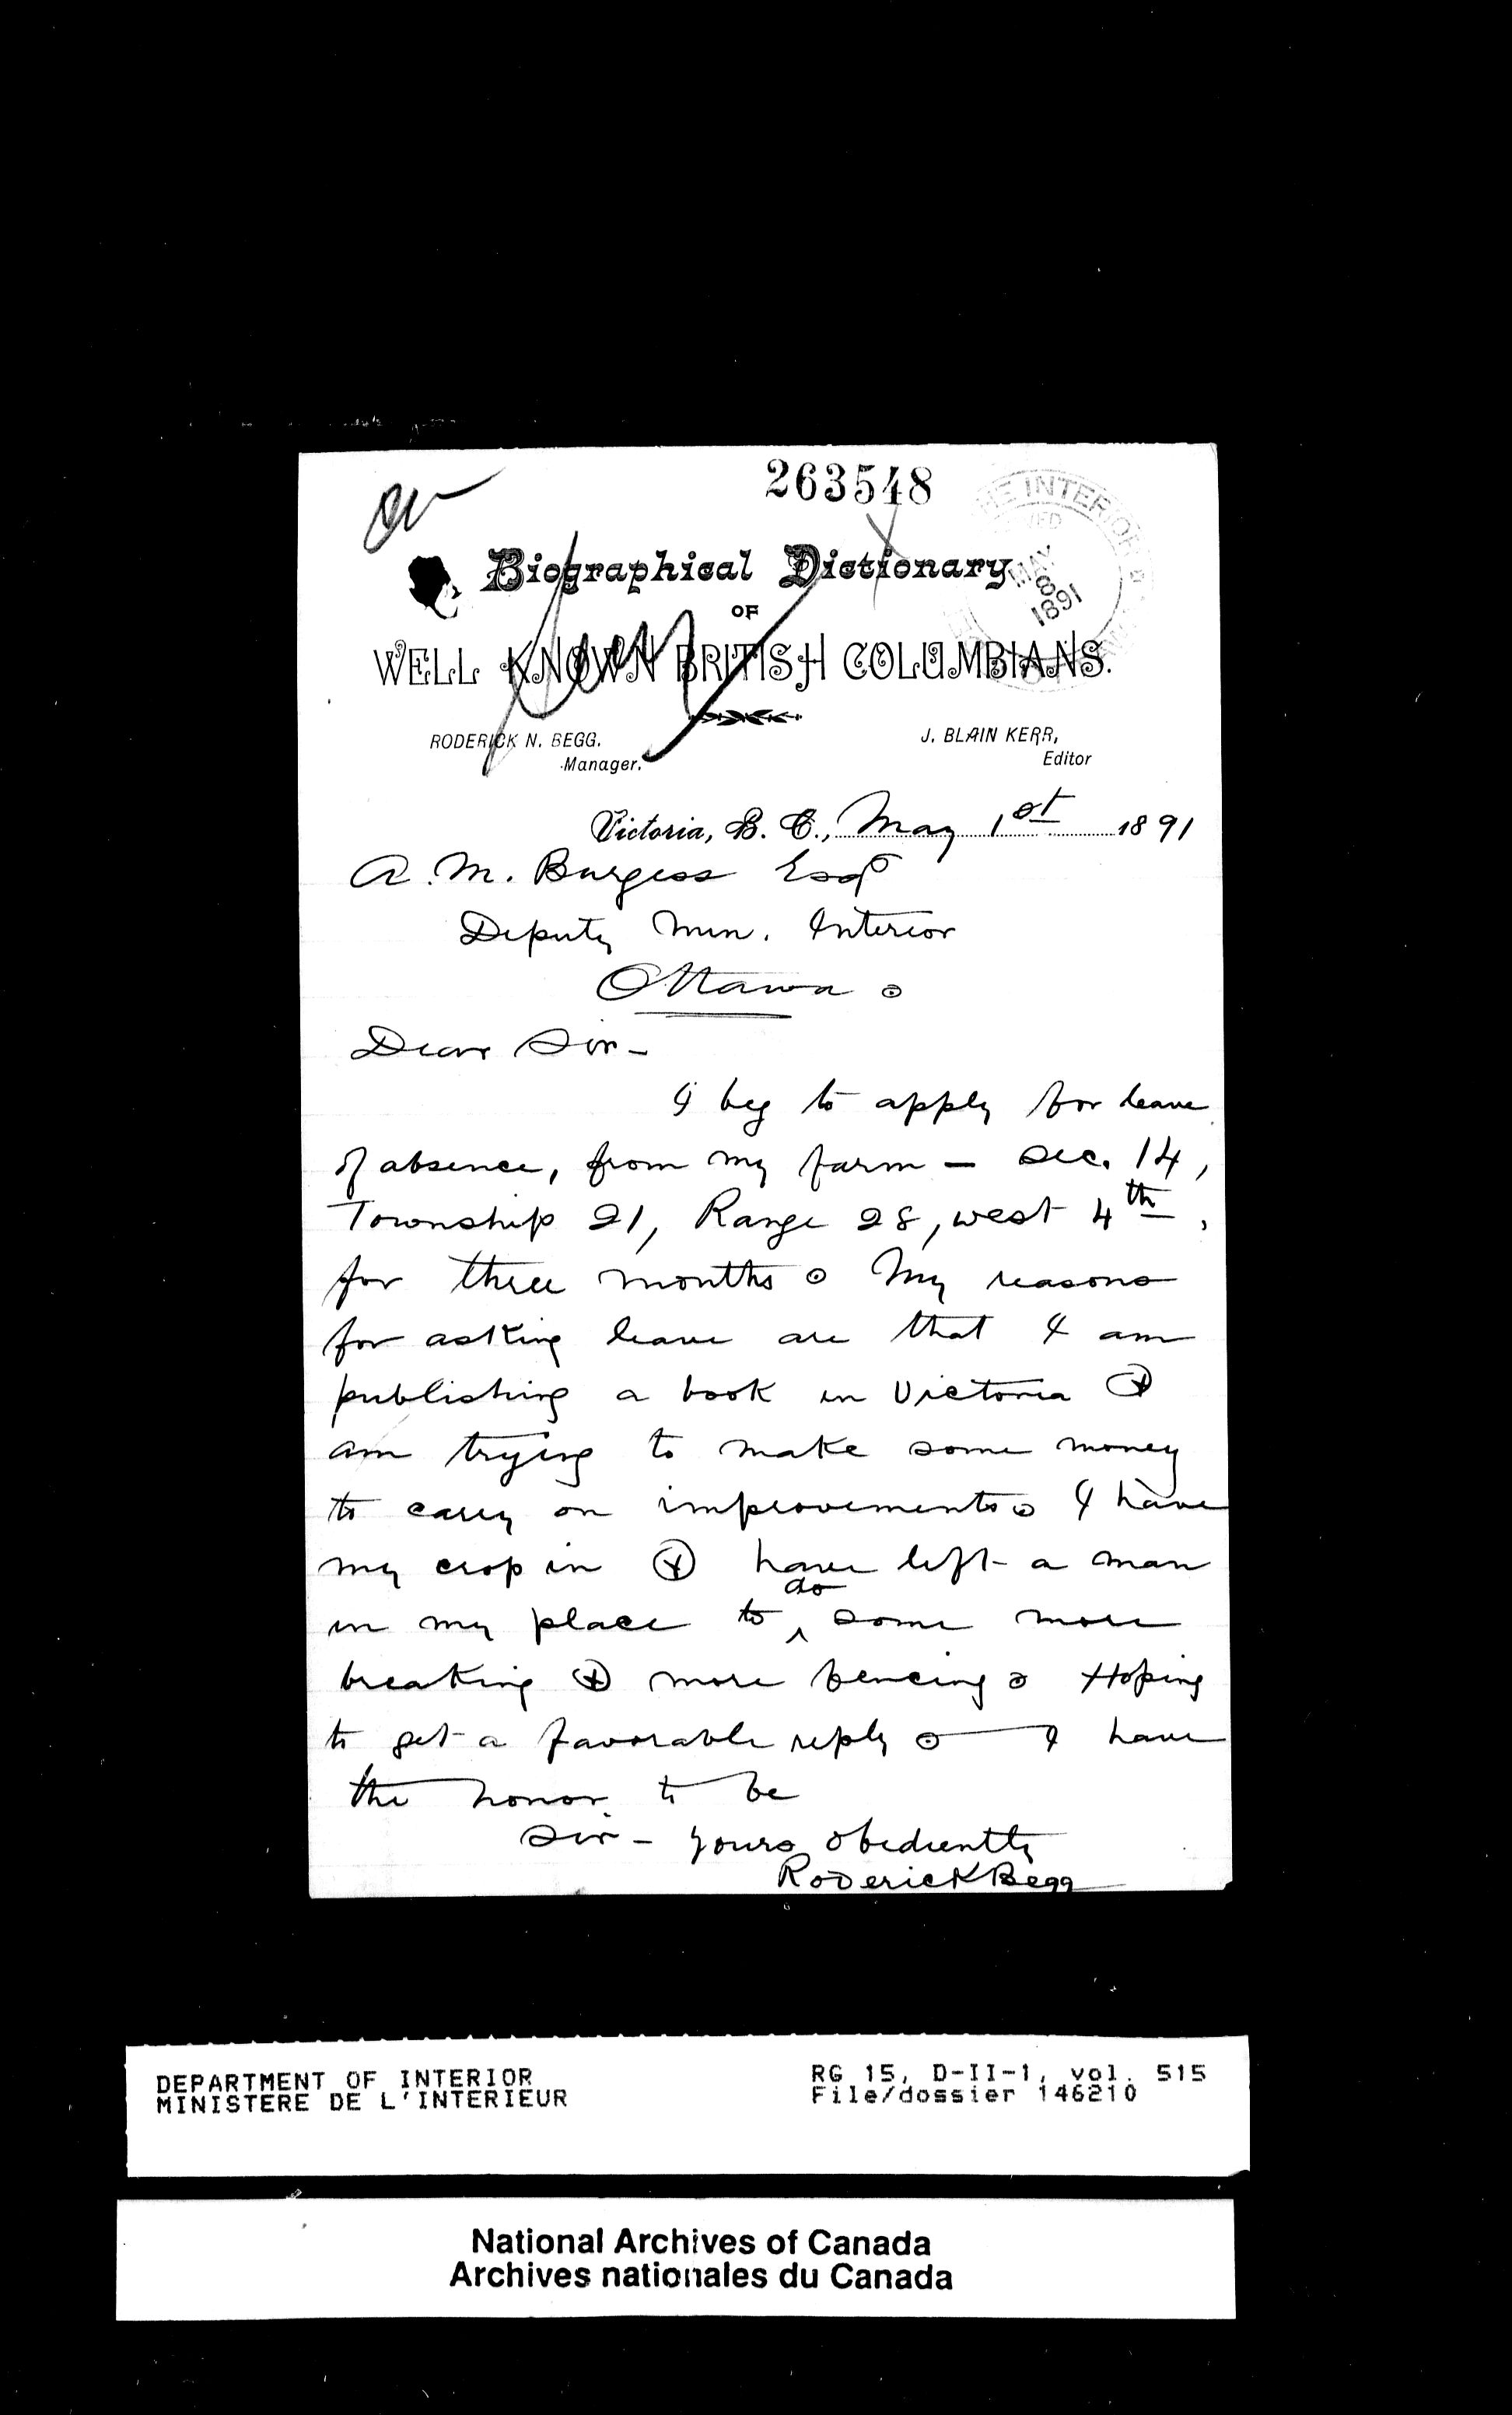 263548
THE INTERIOR
MAY
8
1891
Biographical Dictionary
OF
WELL KNOWN BRITISH COLUMBIANS.
RODERICK N. BEGG.
Manager.
J. BLAIN KERR,
Editor
Victoria, B. C., May 1st 1891
A. M. Burgess Esq
Deputy Min. Interior
Ottawa.
Dear Sir -
I beg to apply for leave
of absence, from my farm - Sec. 14,
Township 21, Range 28, west 4th,
for three months. My reasons
for asking leave are that I am
publishing a book in Victoria &
am trying to make some money
to carry on improvements. I have
my crop in & have left a man
in my place to do some more
breaking & more fencing. Hoping
to get a favorable reply. — I have
the honor to be
Sir - yours obediently
Roderick Begg
DEPARTMENT OF INTERIOR
MINISTERE DE L'INTERIEUR
RG 15, D-II-1, vol. 515
File/dossier 146210
National Archives of Canada
Archives nationales du Canada